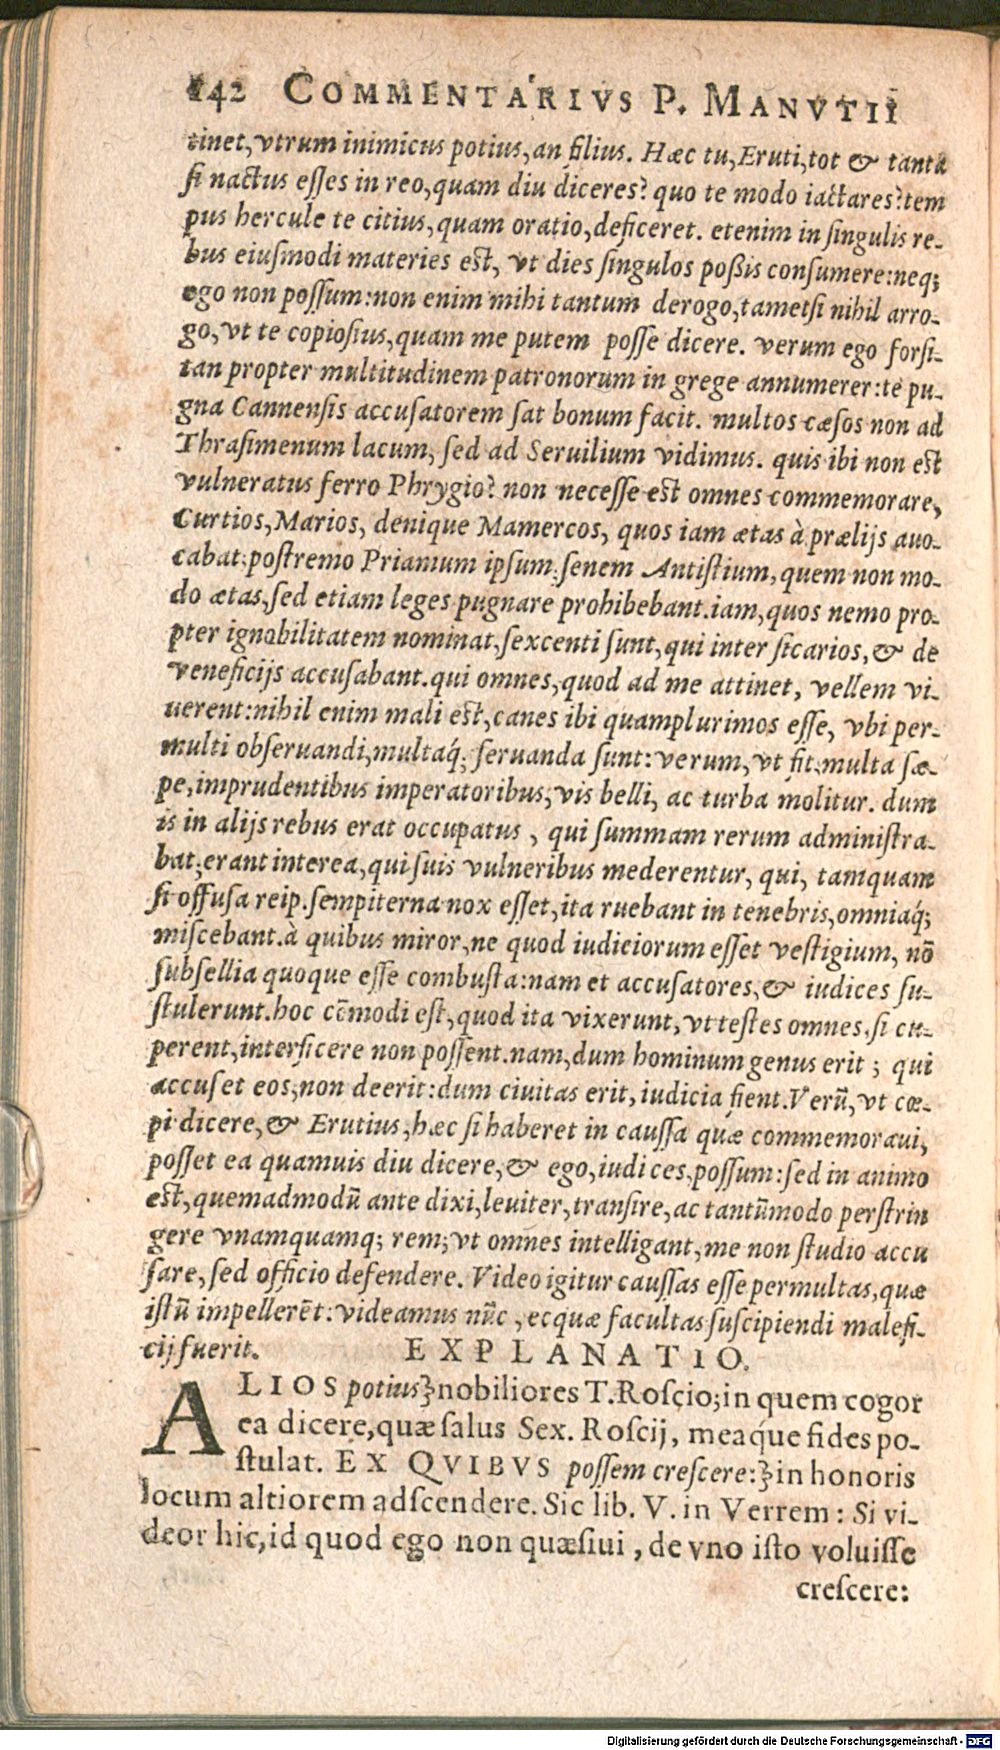 142 COMMENTARIVS P. MANVTII
tinet, vtrum inimicus potius, an filius. Hæc tu, Eruti, tot & tanta
si nactus esses in reo, quam diu diceres? quo te modo iactares? tem
pus hercule te citius, quam oratio, deficeret. etenim in singulis re-
bus eiusmodi materies est, vt dies singulos poßis consumere: neq;
ego non possum: non enim mihi tantum derogo, tametsi nihil arro-
go, vt te copiosius, quam me putem posse dicere. verum ego forsi-
tan propter multitudinem patronorum in grege annumerer: te pu-
gna Cannensis accusatorem sat bonum facit. multos cæsos non ad
Thrasimenum lacum, sed ad Seruilium vidimus. quis ibi non est
vulneratus ferro Phrygio? non necesse est omnes commemorare,
Curtios, Marios, denique Mamercos, quos iam ætas à prælijs auo-
cabat: postremo Priamum ipsum: senem Antistium, quem non mo-
do ætas, sed etiam leges pugnare prohibebant. iam, quos nemo pro-
pter ignobilitatem nominat, sexcenti sunt, qui inter sicarios, & de
veneficijs accusabant. qui omnes, quod ad me attinet, vellem vi-
uerent: nihil enim mali est, canes ibi quamplurimos esse, vbi per-
multi obseruandi, multaq́; seruanda sunt: verum, vt fit, multa sæ-
pe, imprudentibus imperatoribus, vis belli, ac turba molitur. dum
is in alijs rebus erat occupatus, qui summam rerum administra-
bat; erant interea, qui suis vulneribus mederentur, qui, tamquam
si offusa reip. sempiterna nox esset, ita ruebant in tenebris, omniaq́;
miscebant. à quibus miror, ne quod iudiciorum esset vestigium, nō
subsellia quoque esse combusta: nam et accusatores, & iudices su-
stulerunt. hoc cōmodi est, quod ita vixerunt, vt testes omnes, si cu-
perent, interficere non possent. nam, dum hominum genus erit; qui
accuset eos, non deerit: dum ciuitas erit, iudicia fient. Verū, vt cœ-
pi dicere, & Erutius, hæc si haberet in caussa quæ commemoraui,
posset ea quamuis diu dicere, & ego, iudices, possum: sed in animo
est, quemadmodū ante dixi, leuiter, transire, ac tantūmodo perstrin
gere vnamquamq; rem; vt omnes intelligant, me non studio accu
sare, sed officio defendere. Video igitur caussas esse permultas, quæ
istū impellerēt: videamus nūc, ecquæ facultas suscipiendi malefi-
cij fuerit.
EXPLANATIO.
ALIOS potius ꝫ nobiliores T. Roscio; in quem cogor
ea dicere, quæ salus Sex. Roscij, meaq́ue fides po-
stulat. EX QVIBVS possem crescere: ꝫ in honoris
locum altiorem adscendere. Sic lib. V. in Verrem: Si vi-
deor hic, id quod ego non quæsiui, de vno isto voluisse
crescere:
Digitalisierung gefördert durch die Deutsche Forschungsgemeinschaft - DFG